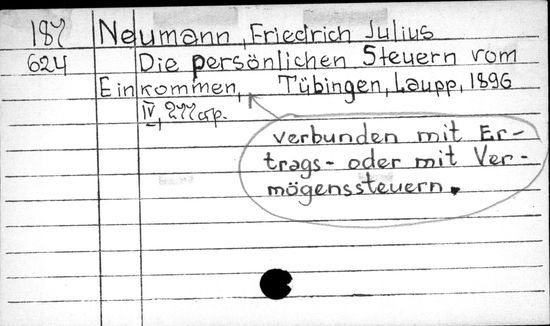 187 Neumann, Friedrich Julius
624 Die persönlichen Steuern vom
Einkommen, Tübingen, Laupp, 1896
IV,
verbunden mit Er-
trags- oder mit Ver-
mögenssteuern.